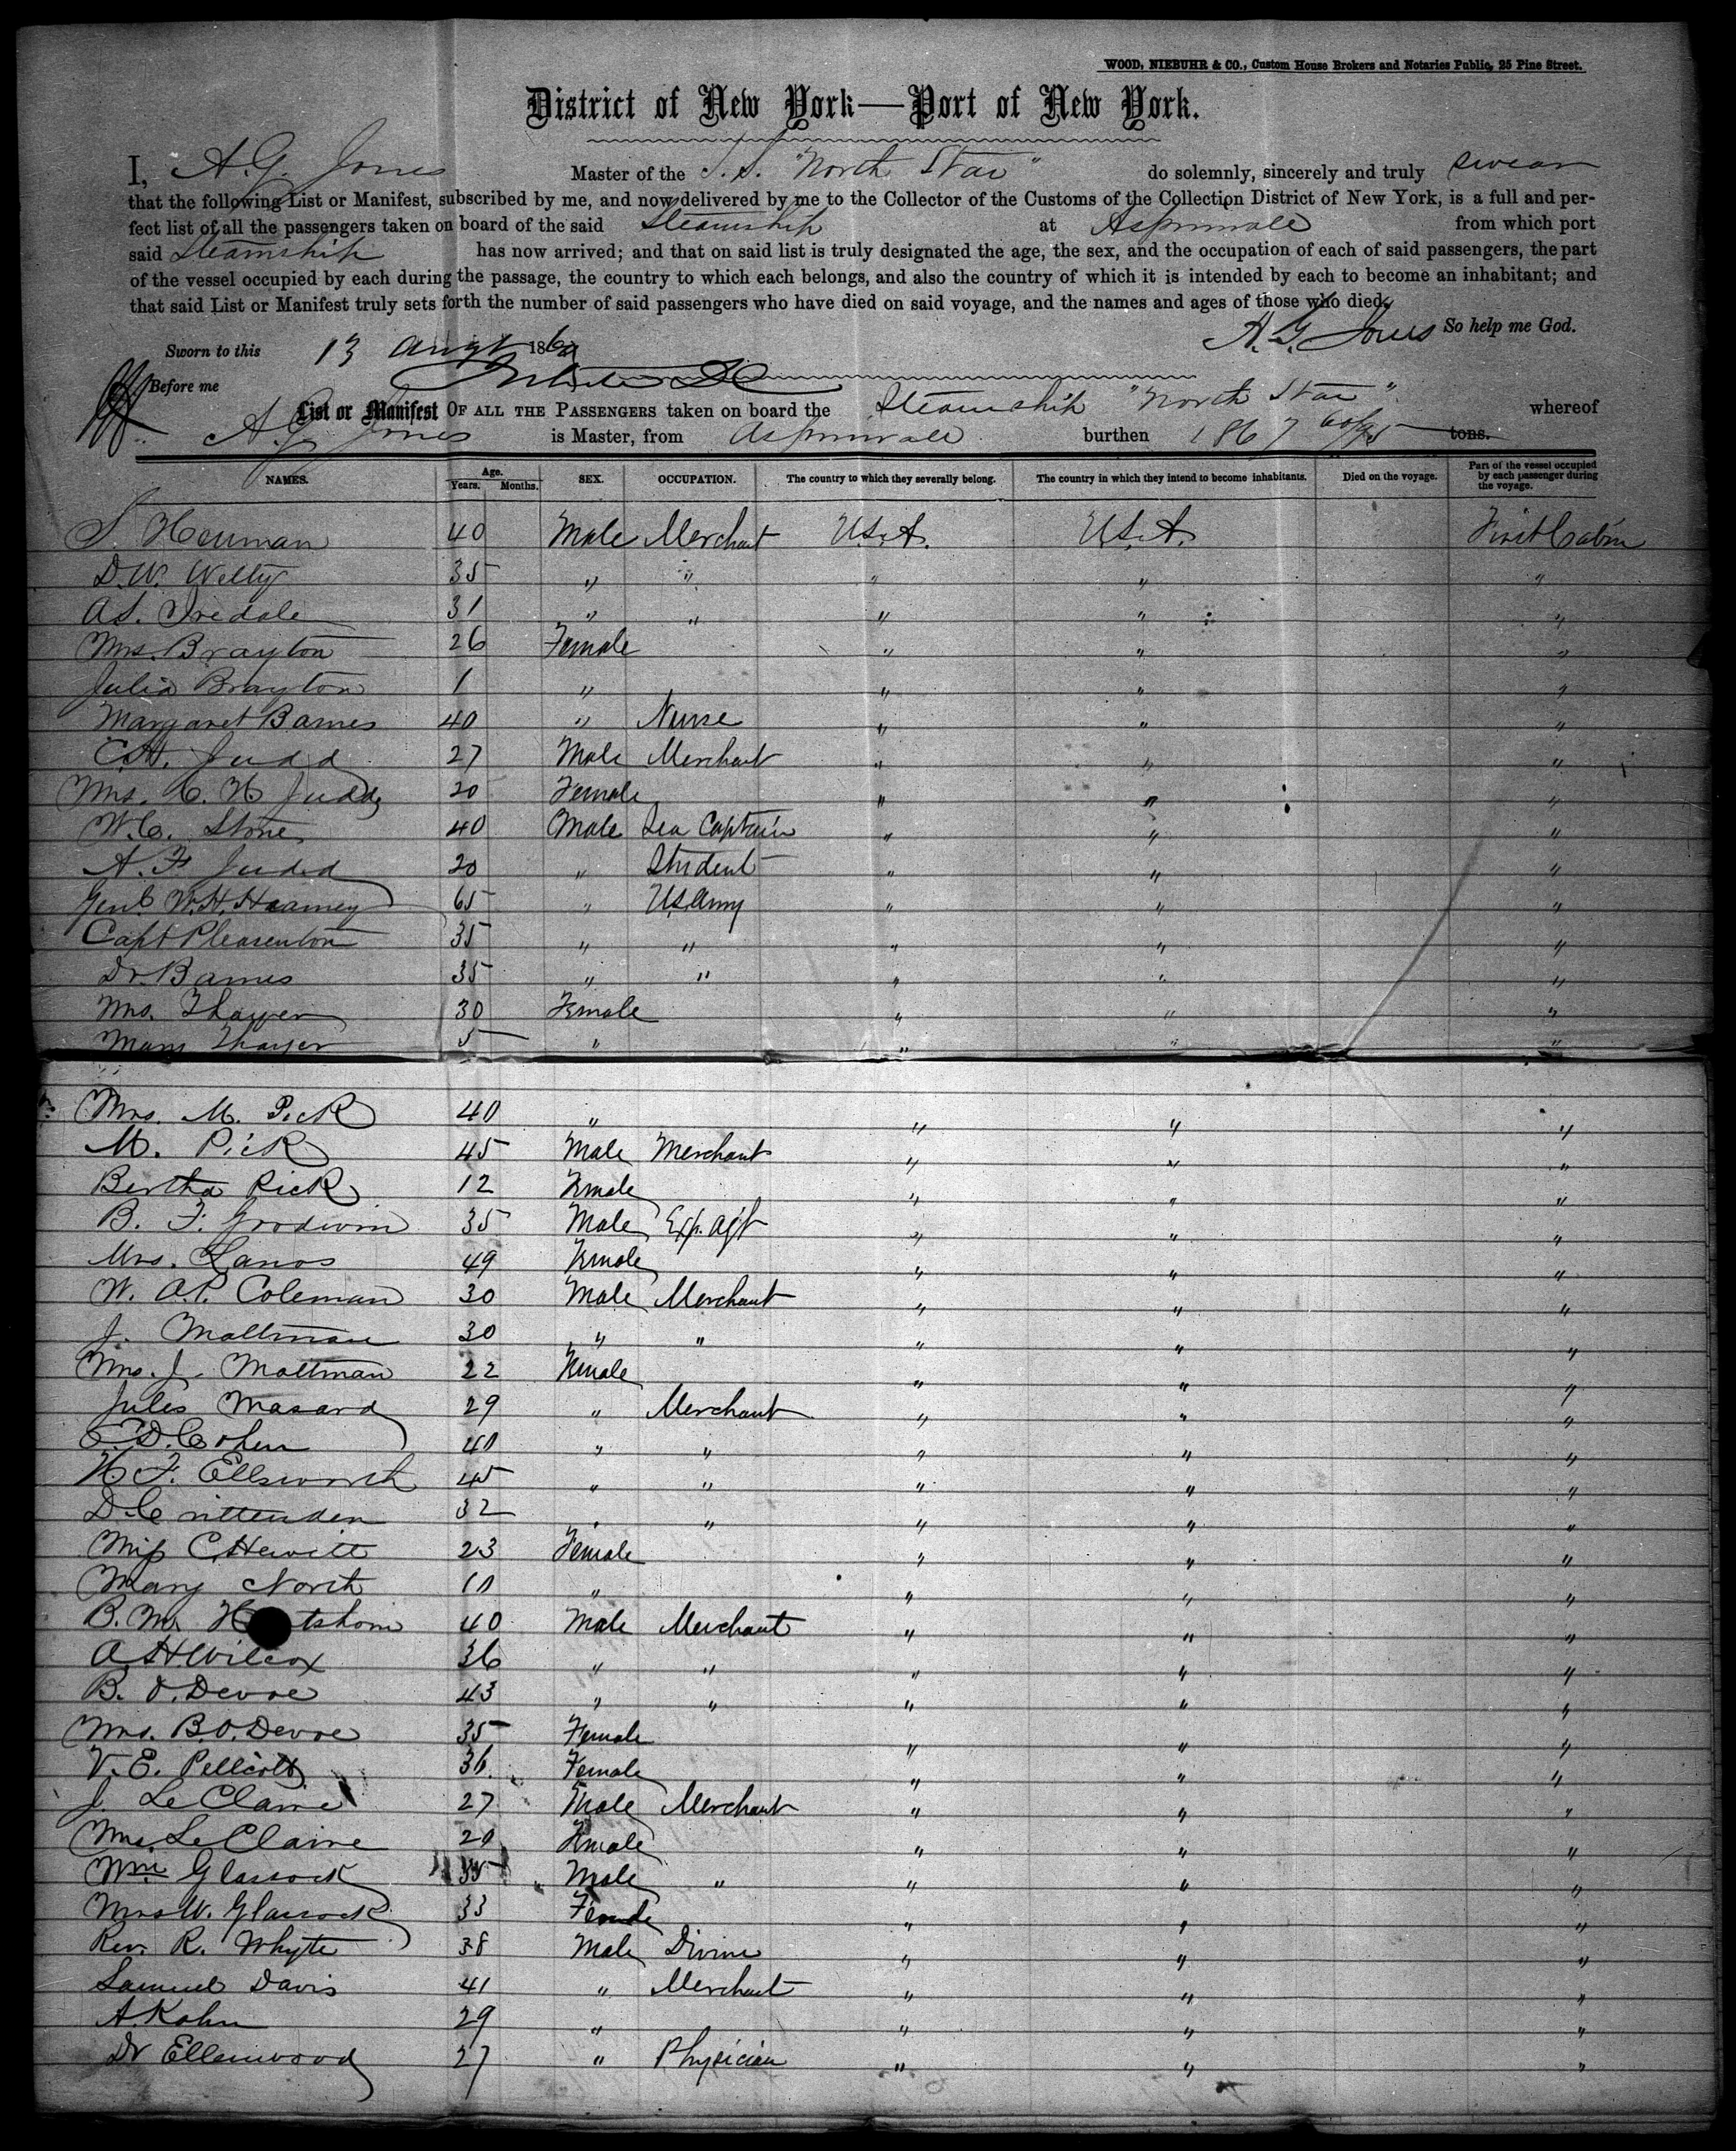 WOOD, NIEBUHR & CO., Custom House Brokers and Notaries Public, 25 Pine Street.
District of New York—Port of New York.
I, A. G. Jones Master of the S. S. "North Star" do solemnly, sincerely and truly swear
that the following List or Manifest, subscribed by me, and now delivered by me to the Collector of the Customs of the Collection District of New York, is a full and per-
fect list of all the passengers taken on board of the said Steamship at Aspinwall from which port
said Steamship has now arrived; and that on said list is truly designated the age, the sex, and the occupation of each of said passengers, the part
of the vessel occupied by each during the passage, the country to which each belongs, and also the country of which it is intended by each to become an inhabitant; and
that said List or Manifest truly sets forth the number of said passengers who have died on said voyage, and the names and ages of those who died.
A. G. Jones So help me God.
Sworn to this 13 Augt 1860
Before me
List or Manifest OF ALL THE PASSENGERS taken on board the Steamship "North Star" whereof
A. G. Jones is Master, from Aspinwall burthen 1867 60/95 tons.
NAMES. Age. Years. Months. SEX. OCCUPATION. The country to which they severally belong. The country in which they intend to become inhabitants. Died on the voyage. Part of the vessel occupied by each passenger during the voyage.
S. Heuman 40 Male Merchant U.S.A. U.S.A. First Cabin
D. W. Welty 35 " " " " "
A S. Iredale 31 " " " " "
Mrs. Brayton 26 Female " " "
Julia Brayton 1 " " " "
Margaret Barnes 40 " Nurse " " "
C. H. Judd 27 Male Merchant " " "
Mrs. C. H Judd 20 Female " " "
W. C. Stone 40 Male Sea Captain " " "
A. F Judd 20 " Student " " "
Genl W. H. Haarney 65 " US Army " " "
Capt Pleasenton 35 " " " " "
Dr. Barnes 35 " " " " "
Mrs. Thayer 30 Female " " "
Mary Thayer 5 " " " "
Mrs. M. Pick 40 " " " "
M. Pick 45 Male Merchant " " "
Bertha Pick 12 Female " " "
B. F. Goodwin 35 Male Exp. Agt " " "
Mrs. Lanos 49 Female " " "
W. A. P. Coleman 30 Male Merchant " " "
J. Maltman 30 " " " " "
Mrs. J. Maltman 22 Female " " "
Jules Masard 29 " Merchant " " "
D. Cohen 40 " " " " "
H F. Ellsworth 45 " " " " "
D. Crittenden 32 " " " " "
Miss C. Hewitt 23 Female " " "
Mary North 10 " " " "
B. M. H tshorn 40 Male Merchant " " "
A. H. Wilcox 36 " " " " "
B. O. Devoe 43 " " " " "
Mrs. B. O. Devoe 35 Female " " "
V. E. Pellcott 36 Female " " "
J. Le Claire 27 Male Merchant " " "
Mrs Le Claire 20 Female " " "
Wm Glassock 35 Male " " " "
Mrs W. Glassock 33 Female " " "
Rev. R. Whyte 38 Male Divine " " "
Samuel Davis 41 " Merchant " " "
A. Kohn 29 " " " "
Dr Ellenwood 27 " Physician " " "